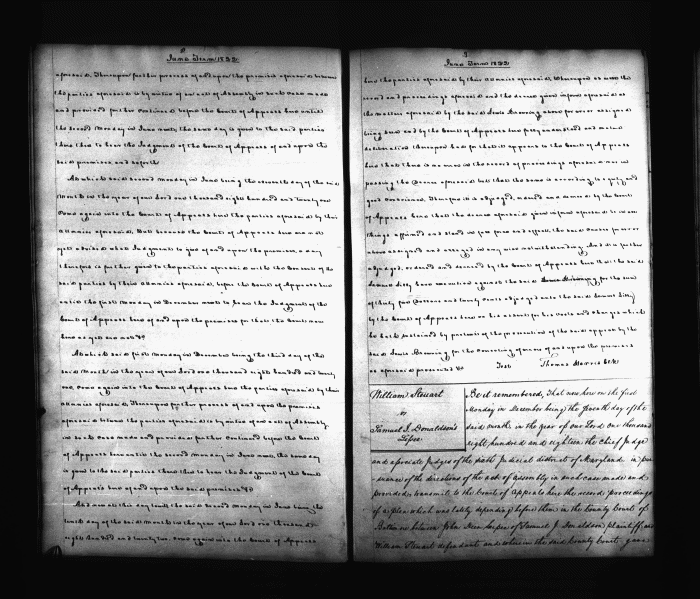 June Term 1822
aforesaid. Thereupon further process of and upon the premises aforesaid between
the parties aforesaid is by virtue of an act of Assembly in such case made
and provided further continued before the Court of Appeals here until
the second Monday in June next, the same day is given to the said parties
then there to hear the Judgment of the Court of Appeals of and upon the
said premises and so forth
At which said second Monday in June being the eleventh day of the said
Month in the year of our Lord one thousand eight hundred and twenty one
come again into the Court of Appeals here the parties aforesaid by their
attornies aforesaid. But because the Court of Appeals here are not
yet advised what Judgment to give of and upon the premises, a day
therefore is further given to the parties aforesaid with the consent of the
said parties by their attornies aforesaid, before the Court of Appeals here
until the first Monday in December next to hear the Judgment of the
Court of Appeals here of and upon the premises for that the Court now
here as yet are not &c
At which said first Monday in December being the third day of the
said Month in the year of our Lord one thousand eight hundred and twenty
one, come again into the Court of Appeals here the parties aforesaid by their
attornies aforesaid. Thereupon further process of and upon the premises
aforesaid between the parties aforesaid is by virtue of an act of Assembly
in such case made and provided further continued before the Court
of Appeals here until the second Monday in June next, the same day
is given to the said parties then there to hear the Judgment of the Court
of Appeals here of and upon the said premises &c
And now at this day to wit the said second Monday in June being the
tenth day of the said Month in the year of our Lord one thousand
eight hundred and twenty two, come again into the Court of Appeals
June Term 1822
here the parties aforesaid by their attornies aforesaid. Whereupon as well the
record and proceedings aforesaid and the decree given in form aforesaid as
the matters aforesaid by the said Lewis Browning above for error assigned
being seen and by the Court of Appeals here fully examined and mature
deliberation thereupon had for that it appears to the Court of Appeals
here that there is no error in the record of proceedings aforesaid nor in
passing the decree aforesaid but that the same is according to equity and
good conscience. Therefore it is adjudged, ordered and decreed by the Court
of Appeals here that the decree aforesaid given in form aforesaid be in all
things affirmed and stand in full force and effect, the said causes for error
above assigned and alledged in any wise notwithstanding. And it is further
adjudged, ordered and decreed by the Court of Appeals here that the said
have execution against the said for the sum
of and twenty cents adjudged unto the said
by the Court of Appeals here on his assent for his costs and charges which
he hath sustained by pretence of the prosecution of the said appeal by the
said Lewis Browning for the correcting of error of and upon the premises
as aforesaid prosecuted &c Test Thomas Harris Clk
William Steuart
vs
Samuel J. Donaldson's
Lessee
Be it remembered, that now here on the first
Monday in December being the seventh day of the
said month in the year of our Lord one thousand
eight hundred and eighteen the Chief Judge
and associate Judges of the sixth Judicial district of Maryland in pur-
suance of the directions of the act of assembly in such case made and
provided, transmit to the Court of Appeals here the record & proceedings
of a plea which was lately depending before them in the County Court of
between John Lessee of Samuel J. Donaldson plaintiff and
William Steuart defendant and where in the said County Court gave